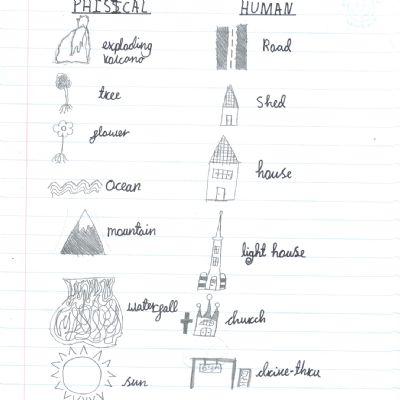 PHISICAL
HUMAN
exploding
volcano
Road
tree
Shed
glower
house
Ocean
mountain
light house
waterfall
church
sun
drive-thru